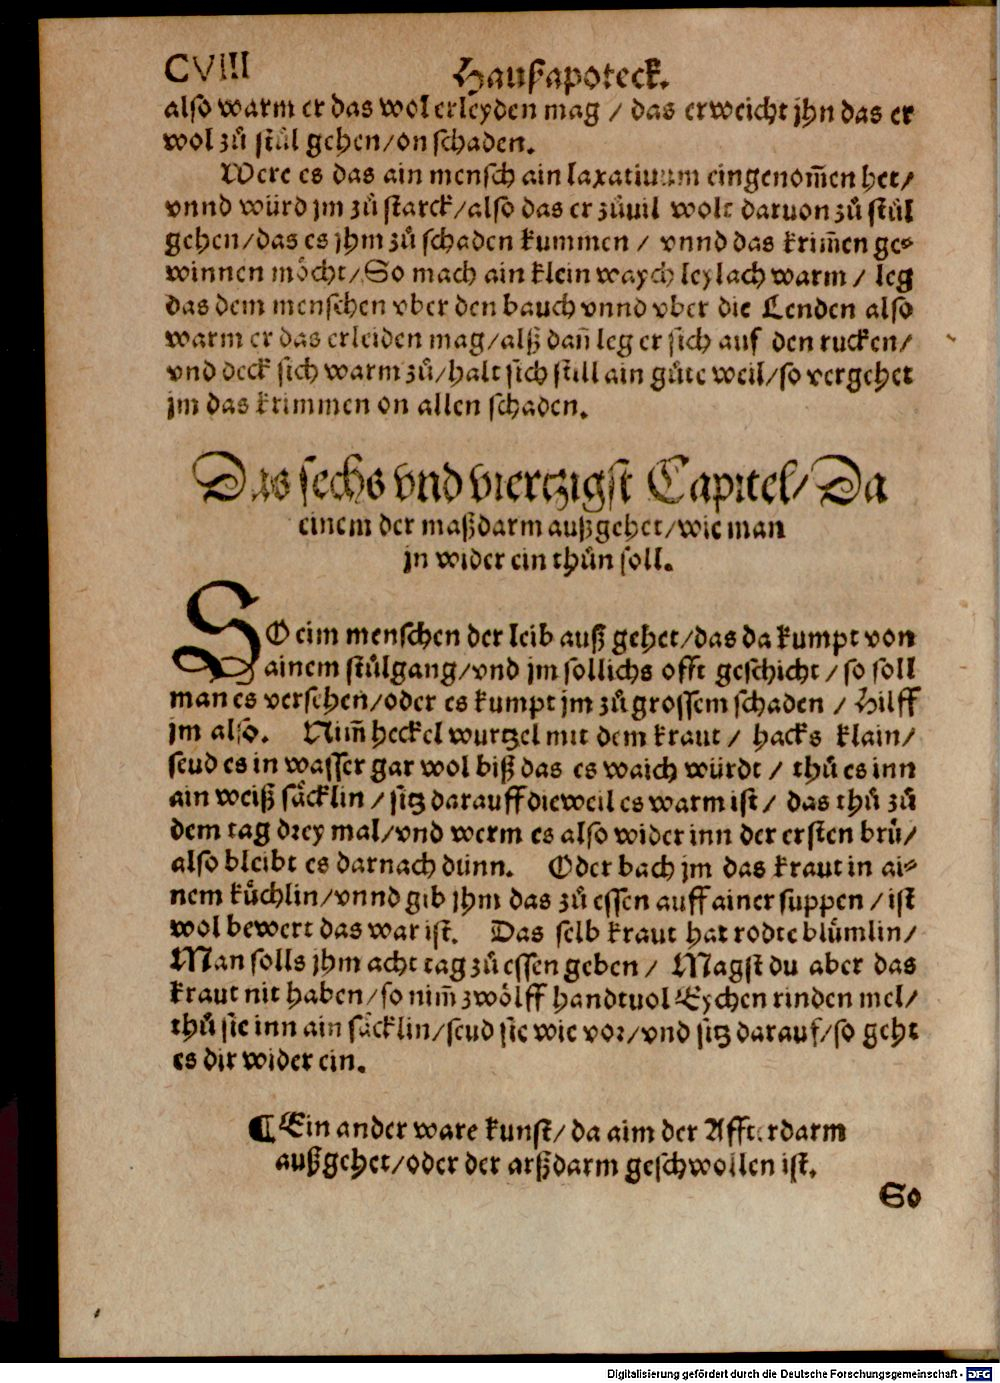 CVIII Haußapoteck.
also warm er das wol erleyden mag / das erweicht jhn das er
wol zů stůl gehen/on schaden.
Were es das ain mensch ain laxatiuum eingenom̃en het/
vnnd würd jm zů starck/also das er zůuil wolt daruon zů stůl
gehen/das es jhm zů schaden kummen / vnnd das krim̃en ge-
winnen möcht/So mach ain klein waych leylach warm / leg
das dem menschen vber den bauch vnnd vber die Lenden also
warm er das erleiden mag/alß dañ leg er sich auf den rucken/
vnd deck sich warm zů/halt sich still ain gůte weil/so vergehet
jm das krimmen on allen schaden.
Das sechs vnd viertzigst Capitel/ Da
einem der maßdarm außgehet/wie man
jn wider ein thůn soll.
SO eim menschen der leib auß gehet/das da kumpt von
ainem stůlgang/vnd jm sollichs offt geschicht / so soll
man es versehen/oder es kumpt jm zů grossem schaden / Hilff
jm also. Nim̃ heckel wurtzel mit dem kraut / hacks klain/
seud es in wasser gar wol biß das es waich würdt / thů es inn
ain weiß säcklin / sitz darauff dieweil es warm ist / das thů zů
dem tag drey mal/vnd werm es also wider inn der ersten brů/
also bleibt es darnach dünn. Oder bach jm das kraut in ai-
nem küchlin/vnnd gib jhm das zů essen auff ainer suppen / ist
wol bewert das war ist. Das selb kraut hat rodte blümlin/
Man solls jhm acht tag zů essen geben / Magst du aber das
kraut nit haben/so nim̃ zwölff handtuol Eychen rinden mel/
thů sie inn ain säcklin/seud sie wie vor/vnd sitz darauf/so geht
es dir wider ein.
¶ Ein ander ware kunst/da aim der Affterdarm
außgehet/oder der arßdarm geschwollen ist.
So
Digitalisierung gefördert durch die Deutsche Forschungsgemeinschaft - DFG